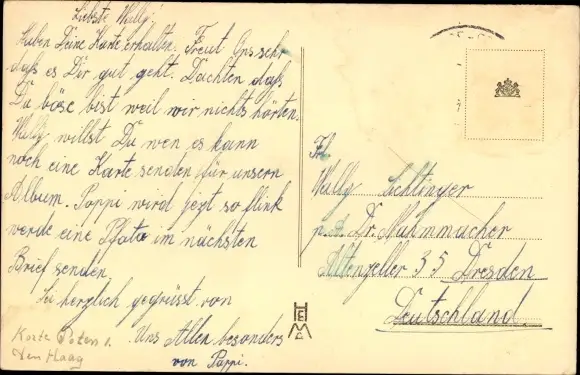 Liebste Wally!
Haben Deine Karte erhalten. Freut Uns sehr
daß es Dir gut geht. Dachten daß
Du böse bist weil wir nichts hörten.
Wally willst Du wen es kann
noch eine Karte senden für unsern
Album. Pappi wird jezt so flink
werde eine Photo im nächsten
Brief senden.
Sei herzlich gegrüsst von
Uns Allen besonders
von Pappi.
Karte Poten v.
den Haag
HEMA
Frl.
Wally Lichtinger
p.A. Dr. Muhmmacher
Altenzeller 35 Dresden
Deutschland.